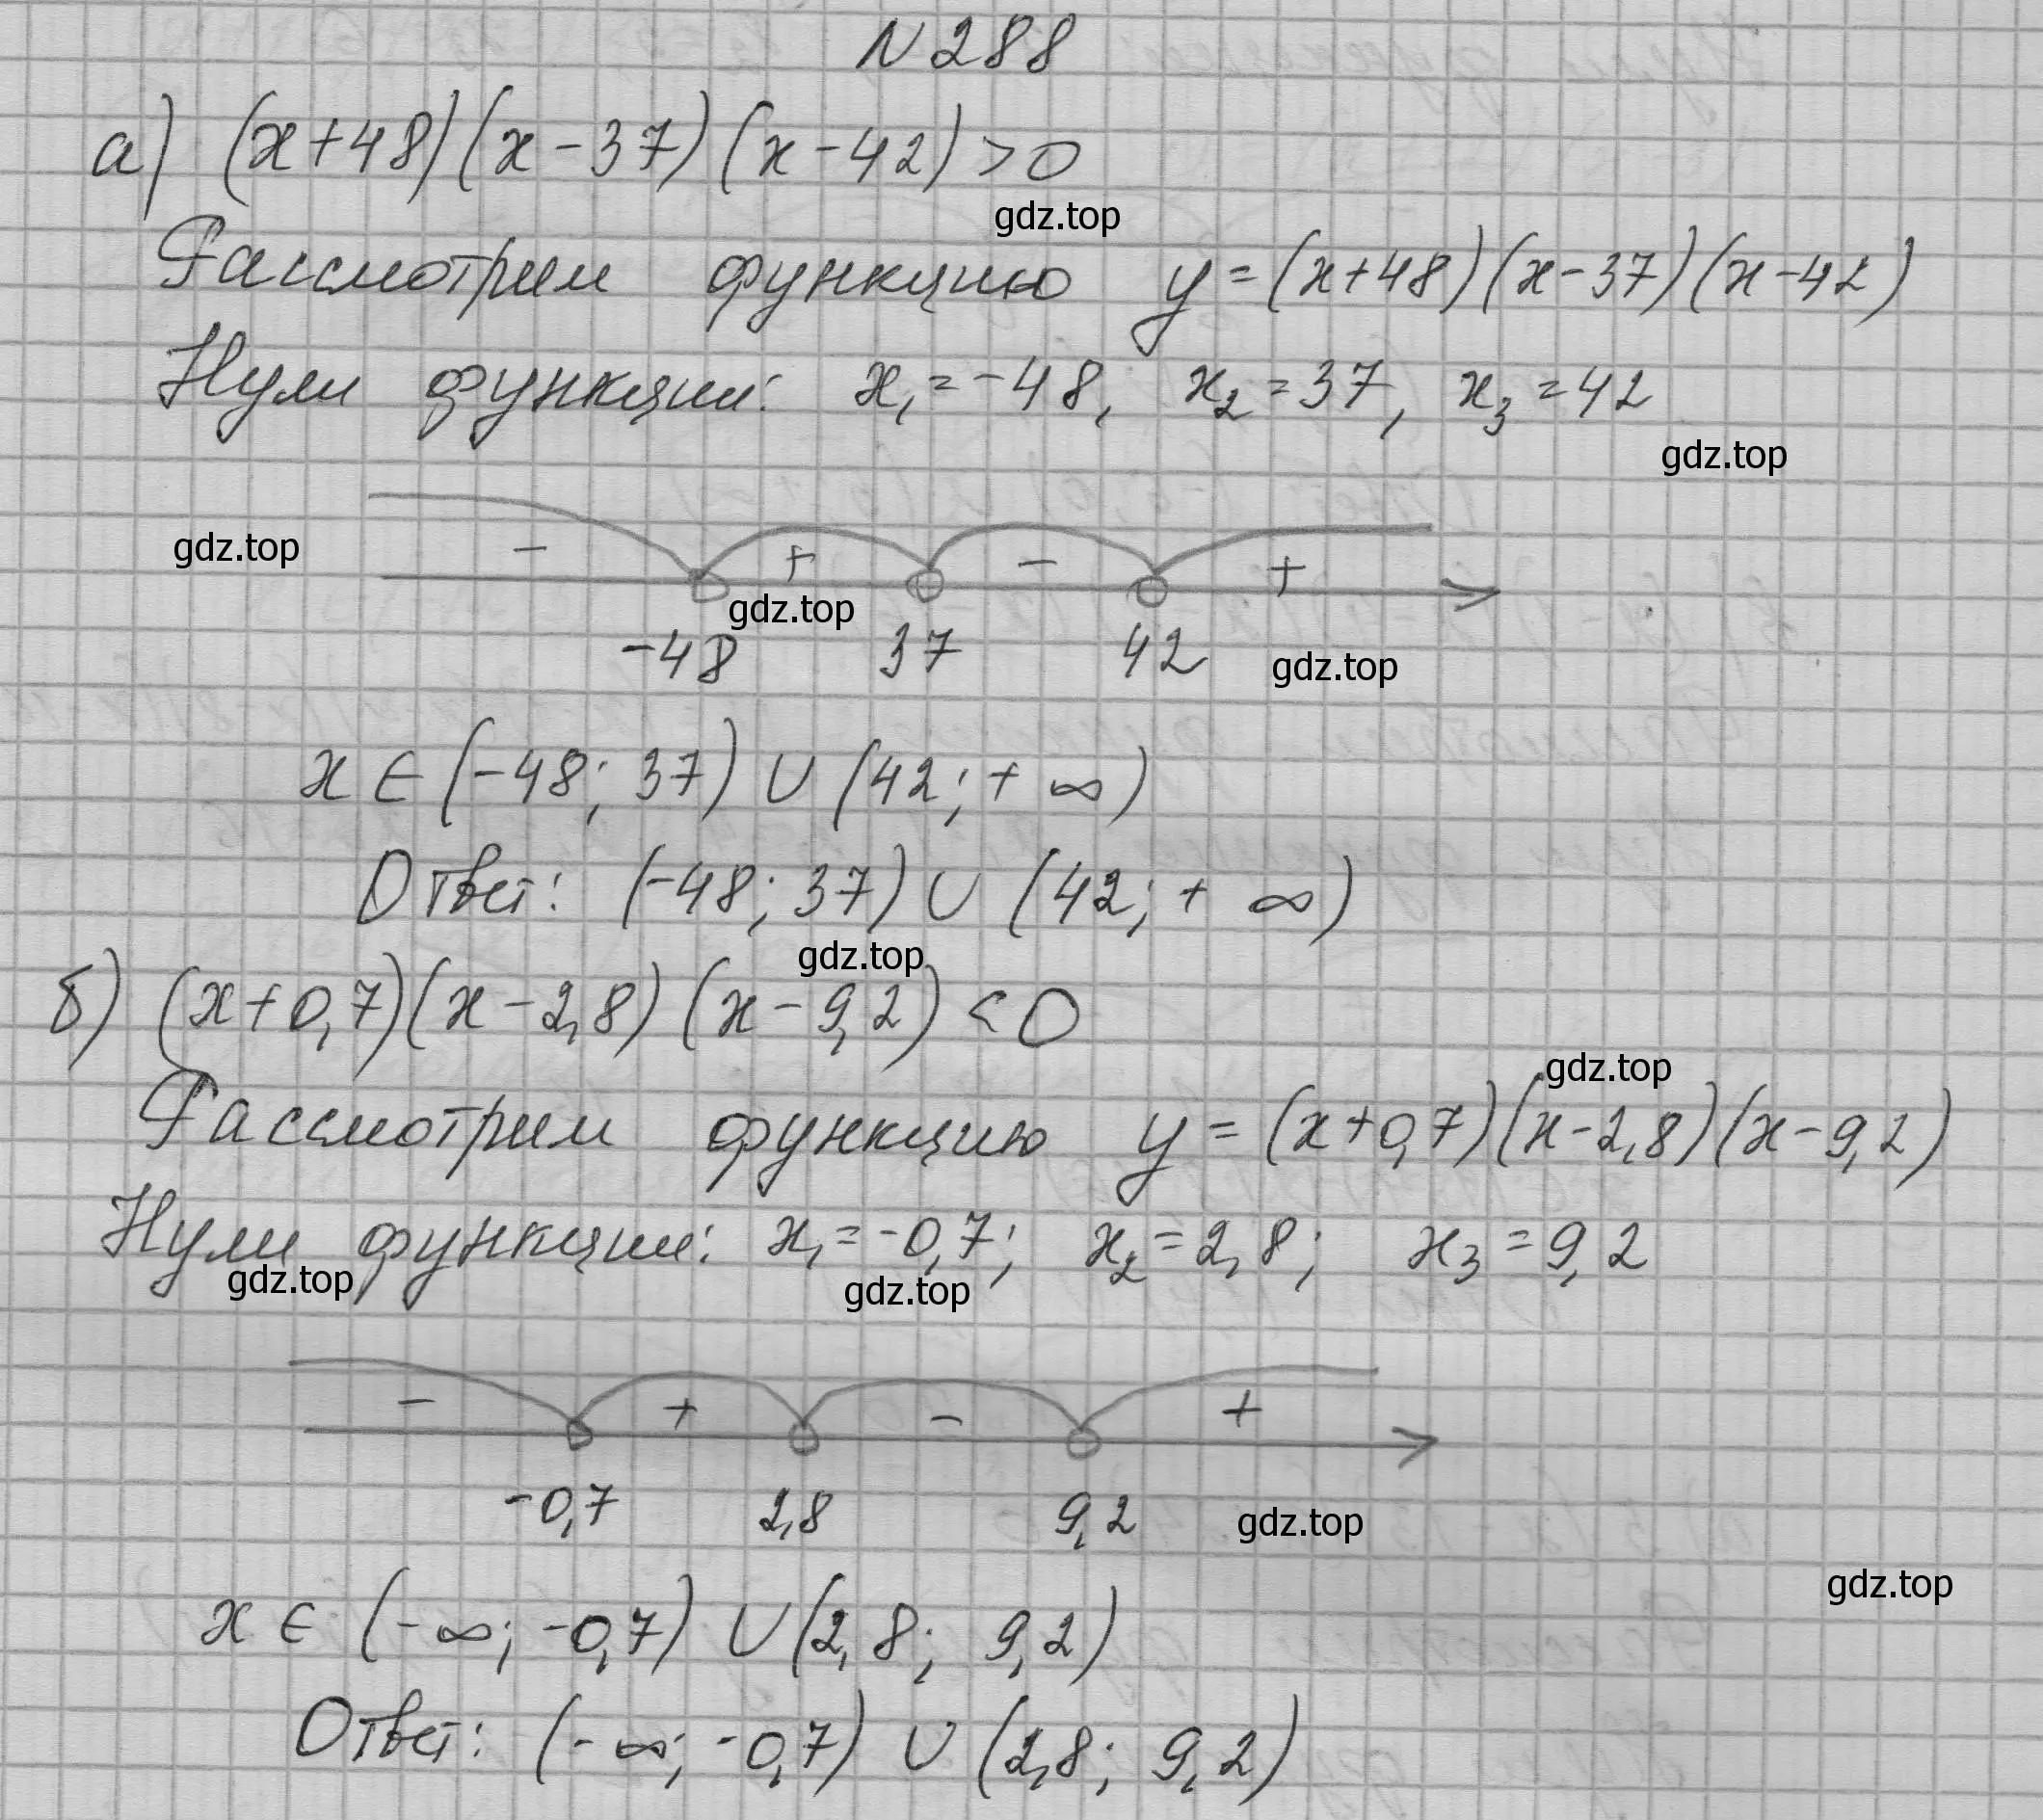 N 288
а) (x+48)(x-37)(x-42)>0
gdz.top
Рассмотрим функцию y=(x+48)(x-37)(x-42)
Нули функции: x₁=-48, x₂=37, x₃=42
gdz.top
gdz.top
- + - +
gdz.top
-48 37 42
gdz.top
x ∈ (-48; 37) ∪ (42; + ∞)
Ответ: (-48; 37) ∪ (42; + ∞)
gdz.top
б) (x+0,7)(x-2,8)(x-9,2)<0
gdz.top
Рассмотрим функцию y=(x+0,7)(x-2,8)(x-9,2)
Нули функции: x₁=-0,7; x₂=2,8; x₃=9,2
gdz.top gdz.top
- + - +
-0,7 2,8 9,2
gdz.top
gdz.top
x ∈ (-∞; -0,7) ∪ (2,8; 9,2)
Ответ: (-∞; -0,7) ∪ (2,8; 9,2)